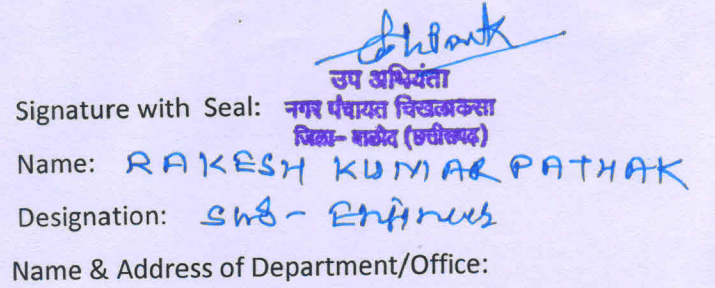 उप अभियंता
Signature with Seal: नगर पंचायत चिखलाकसा
जिला- बालोद (छत्तीसगढ़)
Name: RAKESH KUMAR PATHAK
Designation: Sub-Engineer
Name & Address of Department/Office: